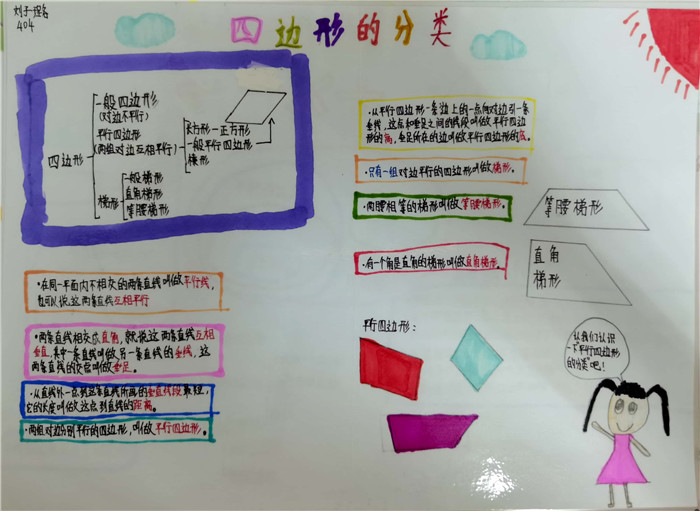 刘子瑄
404
四边形的分类
一般四边形
(对边不平行)
平行四边形
(两组对边互相平行)
长方形-正方形
一般平行四边形
菱形
四边形
梯形
一般梯形
直角梯形
等腰梯形
·在同一平面内不相交的两条直线叫做平行线,
也可以说这两条直线互相平行
·两条直线相交成直角,就说这两条直线互相
垂直,其中一条直线叫做另一条直线的垂线,这
两条直线的交点叫做垂足。
·从直线外一点到这条直线所画的垂直线段最短,
它的长度叫做这点到直线的距离。
·两组对边分别平行的四边形,叫做平行四边形。
·从平行四边形一条边上的一点向对边引一条
垂线,这点和垂足之间的线段叫做平行四边
形的高,垂足所在的边叫做平行四边形的底。
·只有一组对边平行的四边形叫做梯形。
·两腰相等的梯形叫做等腰梯形。
等腰梯形
·有一个角是直角的梯形叫做直角梯形。
直角
梯形
平行四边形:
让我们认识
一下“平行四边形
的分类”吧!